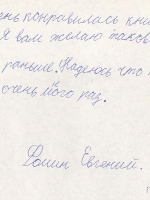 ень понравилась кни
Я вам желаю таков
раньше! Надеюсь что
очень много раз.
Фомин Евгений.